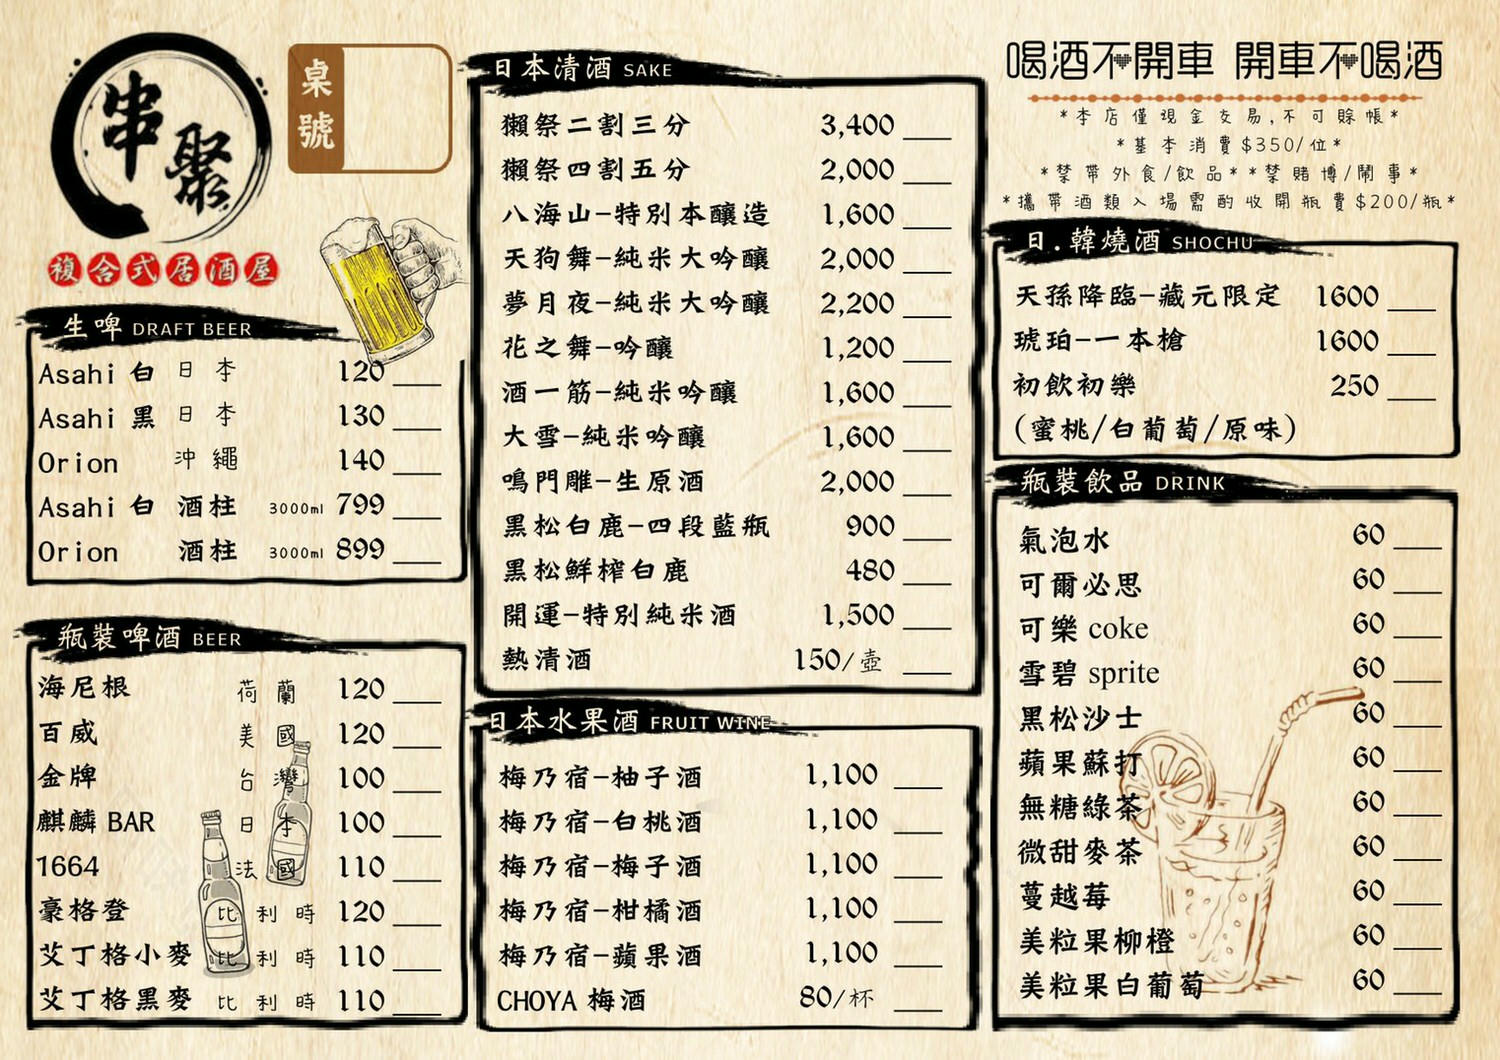 串聚
複合式居酒屋
桌號
生啤 DRAFT BEER
Asahi 白 日本 120
Asahi 黑 日本 130
Orion 沖繩 140
Asahi 白 酒柱 3000ml 799
Orion 酒柱 3000ml 899
瓶裝啤酒 BEER
海尼根 荷蘭 120
百威 美國 120
金牌 台灣 100
麒麟 BAR 日本 100
1664 法國 110
豪格登 比利時 120
艾丁格小麥 比利時 110
艾丁格黑麥 比利時 110
日本清酒 SAKE
獺祭二割三分 3,400
獺祭四割五分 2,000
八海山-特別本釀造 1,600
天狗舞-純米大吟釀 2,000
夢月夜-純米大吟釀 2,200
花之舞-吟釀 1,200
酒一筋-純米吟釀 1,600
大雪-純米吟釀 1,600
鳴門雕-生原酒 2,000
黑松白鹿-四段藍瓶 900
黑松鮮榨白鹿 480
開運-特別純米酒 1,500
熱清酒 150/壺
日本水果酒 FRUIT WINE
梅乃宿-柚子酒 1,100
梅乃宿-白桃酒 1,100
梅乃宿-梅子酒 1,100
梅乃宿-柑橘酒 1,100
梅乃宿-蘋果酒 1,100
CHOYA 梅酒 80/杯
喝酒不開車 開車不喝酒
*本店僅現金交易,不可賒帳*
*基本消費$350/位*
*禁帶外食/飲品**禁賭博/鬧事*
*攜帶酒類入場需酌收開瓶費$200/瓶*
日.韓燒酒 SHOCHU
天孫降臨-藏元限定 1600
琥珀-一本槍 1600
初飲初樂 250
(蜜桃/白葡萄/原味)
瓶裝飲品 DRINK
氣泡水 60
可爾必思 60
可樂 coke 60
雪碧 sprite 60
黑松沙士 60
蘋果蘇打 60
無糖綠茶 60
微甜麥茶 60
蔓越莓 60
美粒果柳橙 60
美粒果白葡萄 60